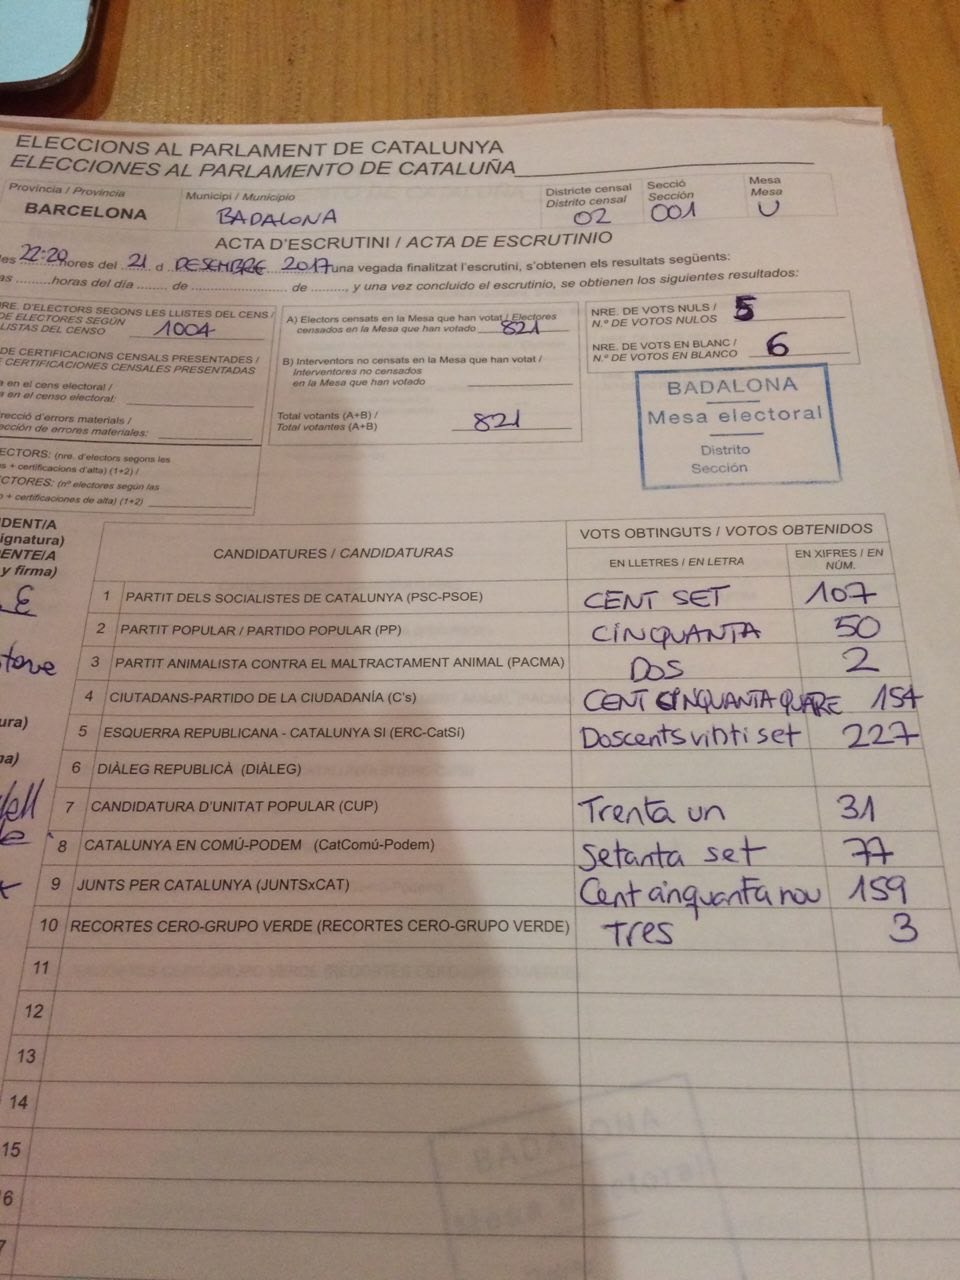 ELECCIONS AL PARLAMENT DE CATALUNYA
ELECCIONES AL PARLAMENTO DE CATALUÑA
Província / Provincia
BARCELONA
Municipi / Municipio
BADALONA
Districte censal
Distrito censal
02
Secció
Sección
001
Mesa
Mesa
U
ACTA D'ESCRUTINI / ACTA DE ESCRUTINIO
les 22:20 hores del 21 d DESEMBRE 2017 una vegada finalitzat l'escrutini, s'obtenen els resultats següents:
as ........horas del día ........ de ................ de ........, y una vez concluido el escrutinio, se obtienen los siguientes resultados:
NRE. D'ELECTORS SEGONS LES LLISTES DEL CENS /
DE ELECTORES SEGÚN
LISTAS DEL CENSO 1004
DE CERTIFICACIONS CENSALS PRESENTADES /
CERTIFICACIONES CENSALES PRESENTADAS
a en el cens electoral /
a en el censo electoral:
recció d'errors materials /
ección de errores materiales:
ECTORS: (nre. d'electors segons les
s + certificacions d'alta) (1+2) /
CTORES: (nº electores según las
o + certificaciones de alta) (1+2)
A) Electors censats en la Mesa que han votat / Electores
censados en la Mesa que han votado 821
B) Interventors no censats en la Mesa que han votat /
Interventores no censados
en la Mesa que han votado
Total votants (A+B) /
Total votantes (A+B) 821
NRE. DE VOTS NULS /
N.º DE VOTOS NULOS 5
NRE. DE VOTS EN BLANC /
N.º DE VOTOS EN BLANCO 6
BADALONA
Mesa electoral
Distrito
Sección
DENT/A
ignatura)
ENTE/A
y firma)
ura)
na)
CANDIDATURES / CANDIDATURAS
VOTS OBTINGUTS / VOTOS OBTENIDOS
EN LLETRES / EN LETRA
EN XIFRES / EN
NÚM.
1 PARTIT DELS SOCIALISTES DE CATALUNYA (PSC-PSOE) CENT SET 107
2 PARTIT POPULAR / PARTIDO POPULAR (PP) CINQUANTA 50
3 PARTIT ANIMALISTA CONTRA EL MALTRACTAMENT ANIMAL (PACMA) DOS 2
4 CIUTADANS-PARTIDO DE LA CIUDADANÍA (C's) CENT CINQUANTA QUARE 154
5 ESQUERRA REPUBLICANA - CATALUNYA SI (ERC-CatSí) Doscents vinti set 227
6 DIÀLEG REPUBLICÀ (DIÀLEG)
7 CANDIDATURA D'UNITAT POPULAR (CUP) Trenta un 31
8 CATALUNYA EN COMÚ-PODEM (CatComú-Podem) Setanta set 77
9 JUNTS PER CATALUNYA (JUNTSxCAT) Cent cinquanta nou 159
10 RECORTES CERO-GRUPO VERDE (RECORTES CERO-GRUPO VERDE) Tres 3
11
12
13
14
15
6
7